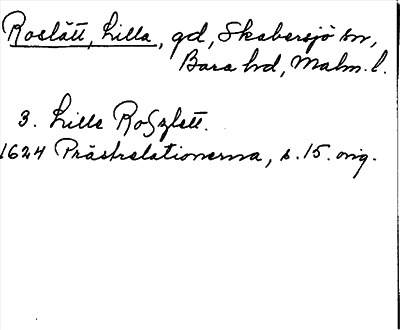 Roslätt, Lilla, gd, Skabersjö sn,
Bara hd, Malm. l.
3. Lille Roszlett.
1624 Prästrelationerna, s. 15. orig.